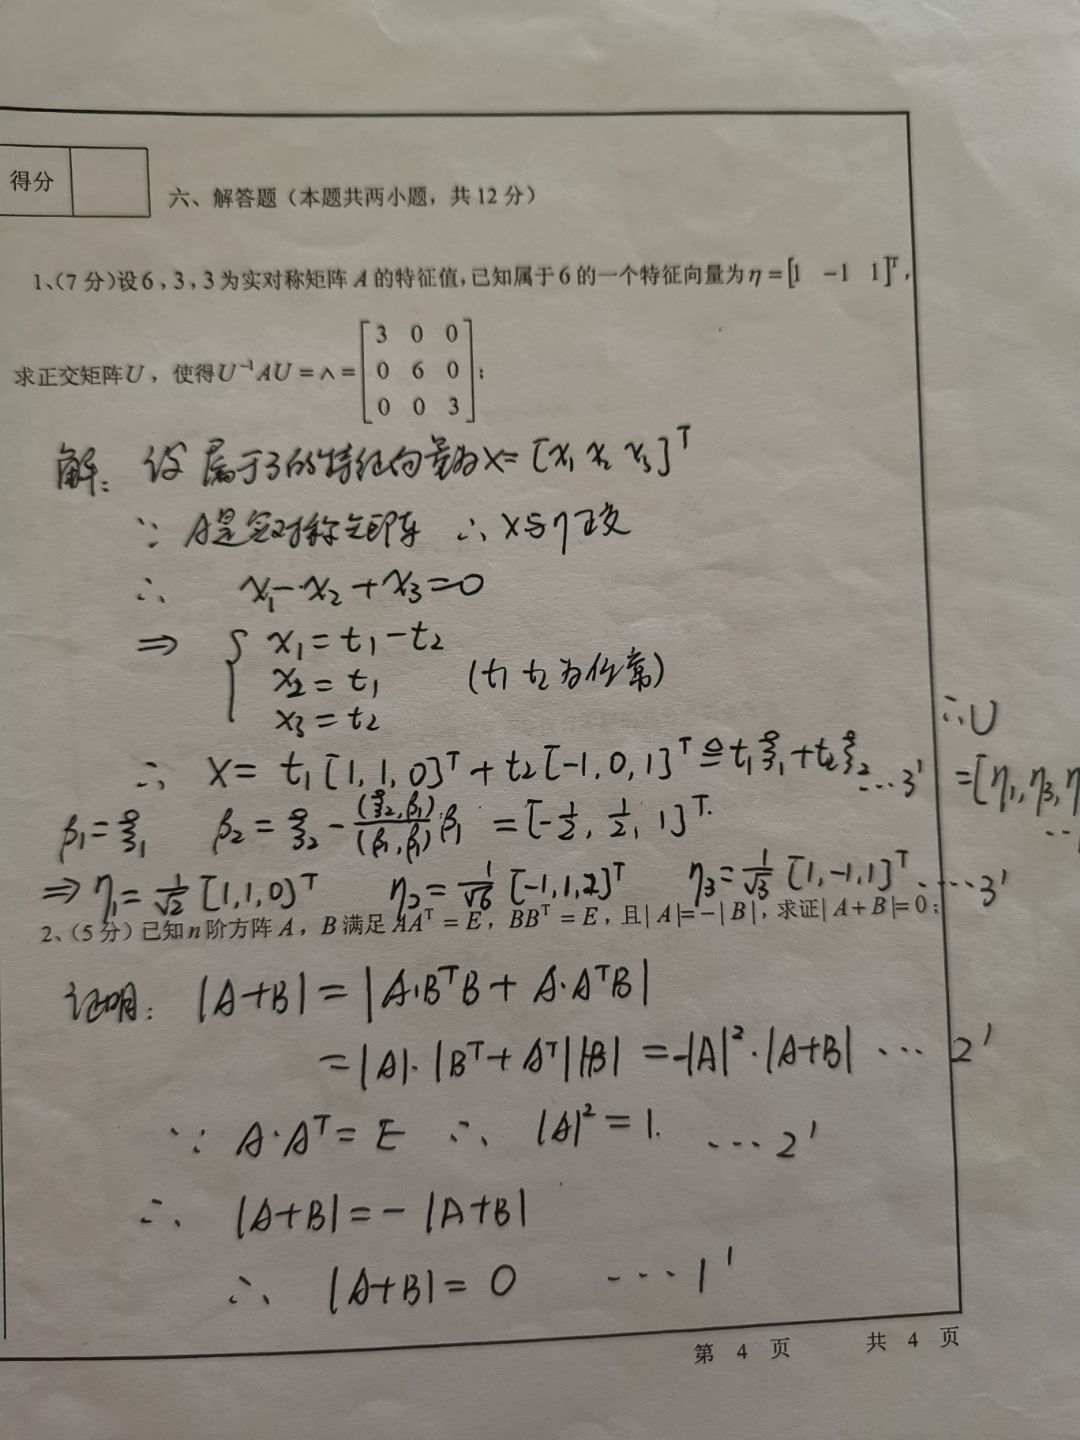 得分
六、解答题（本题共两小题，共 12 分）
1、（7 分）设 6，3，3 为实对称矩阵 A 的特征值，已知属于 6 的一个特征向量为 η = [1 −1 1]ᵀ，
求正交矩阵 U，使得 U⁻¹AU = ∧ = [3 0 0; 0 6 0; 0 0 3]；
解： 设 属于3的特征向量为 X = [x₁ x₂ x₃]ᵀ
∵ A是实对称矩阵 ∴ X与η正交
∴ x₁ − x₂ + x₃ = 0
⇒ { x₁ = t₁ − t₂
x₂ = t₁ (t₁ t₂ 为任常)
x₃ = t₂
∴ X = t₁[1, 1, 0]ᵀ + t₂[−1, 0, 1]ᵀ ≙ t₁ξ₁ + t₂ξ₂ …3′
β₁ = ξ₁ β₂ = ξ₂ − (ξ₂, β₁)/(β₁, β₁) β₁ = [−1/2, 1/2, 1]ᵀ.
⇒ η₁ = 1/√2 [1, 1, 0]ᵀ η₂ = 1/√6 [−1, 1, 2]ᵀ η₃ = 1/√3 [1, −1, 1]ᵀ ……3′
∴ U
= [η₁, η₃, η
…
2、（5 分）已知 n 阶方阵 A，B 满足 AAᵀ = E，BBᵀ = E，且| A |= −| B |，求证| A + B |= 0；
证明： |A+B| = |A·BᵀB + A·AᵀB|
= |A|·|Bᵀ + Aᵀ||B| = −|A|²·|A+B| … 2′
∵ A·Aᵀ = E ∴ |A|² = 1. …2′
∴ |A+B| = − |A+B|
∴ |A+B| = 0 …1′
第 4 页 共 4 页